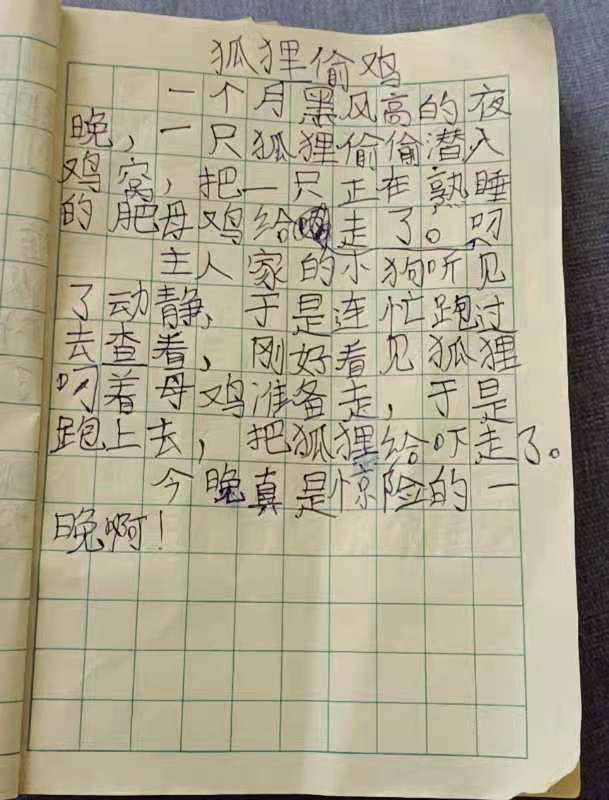 狐狸偷鸡
一个月黑风高的夜
晚，一只狐狸偷偷潜入
鸡窝，把一只正在熟睡
的肥母鸡给走了。叼
主人家的小狗听见
了动静，于是连忙跑过
去查看，刚好看见狐狸
叼着母鸡准备走，于是
跑上去，把狐狸给吓走了。
今晚真是惊险的一
晚啊！